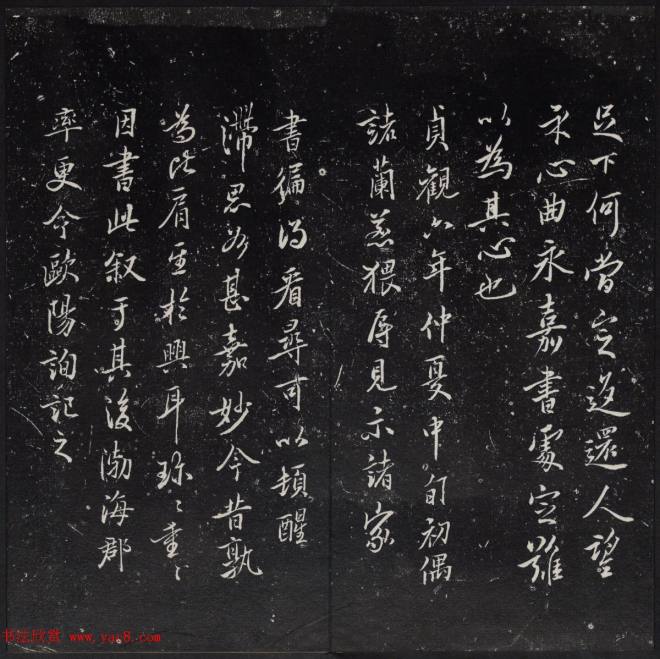 足下何當定返還人望
求心曲永嘉書處定難
以為其心也
貞觀六年仲夏中旬初偶
諸蘭若猥辱見示諸家
書遍得看尋可以頓醒
滯思尤甚嘉妙今昔孰
為比肩至於興耳珍〻重〻
因書此叙于其後渤海郡
率更令歐陽詢記之
书法欣赏 www.yac8.com